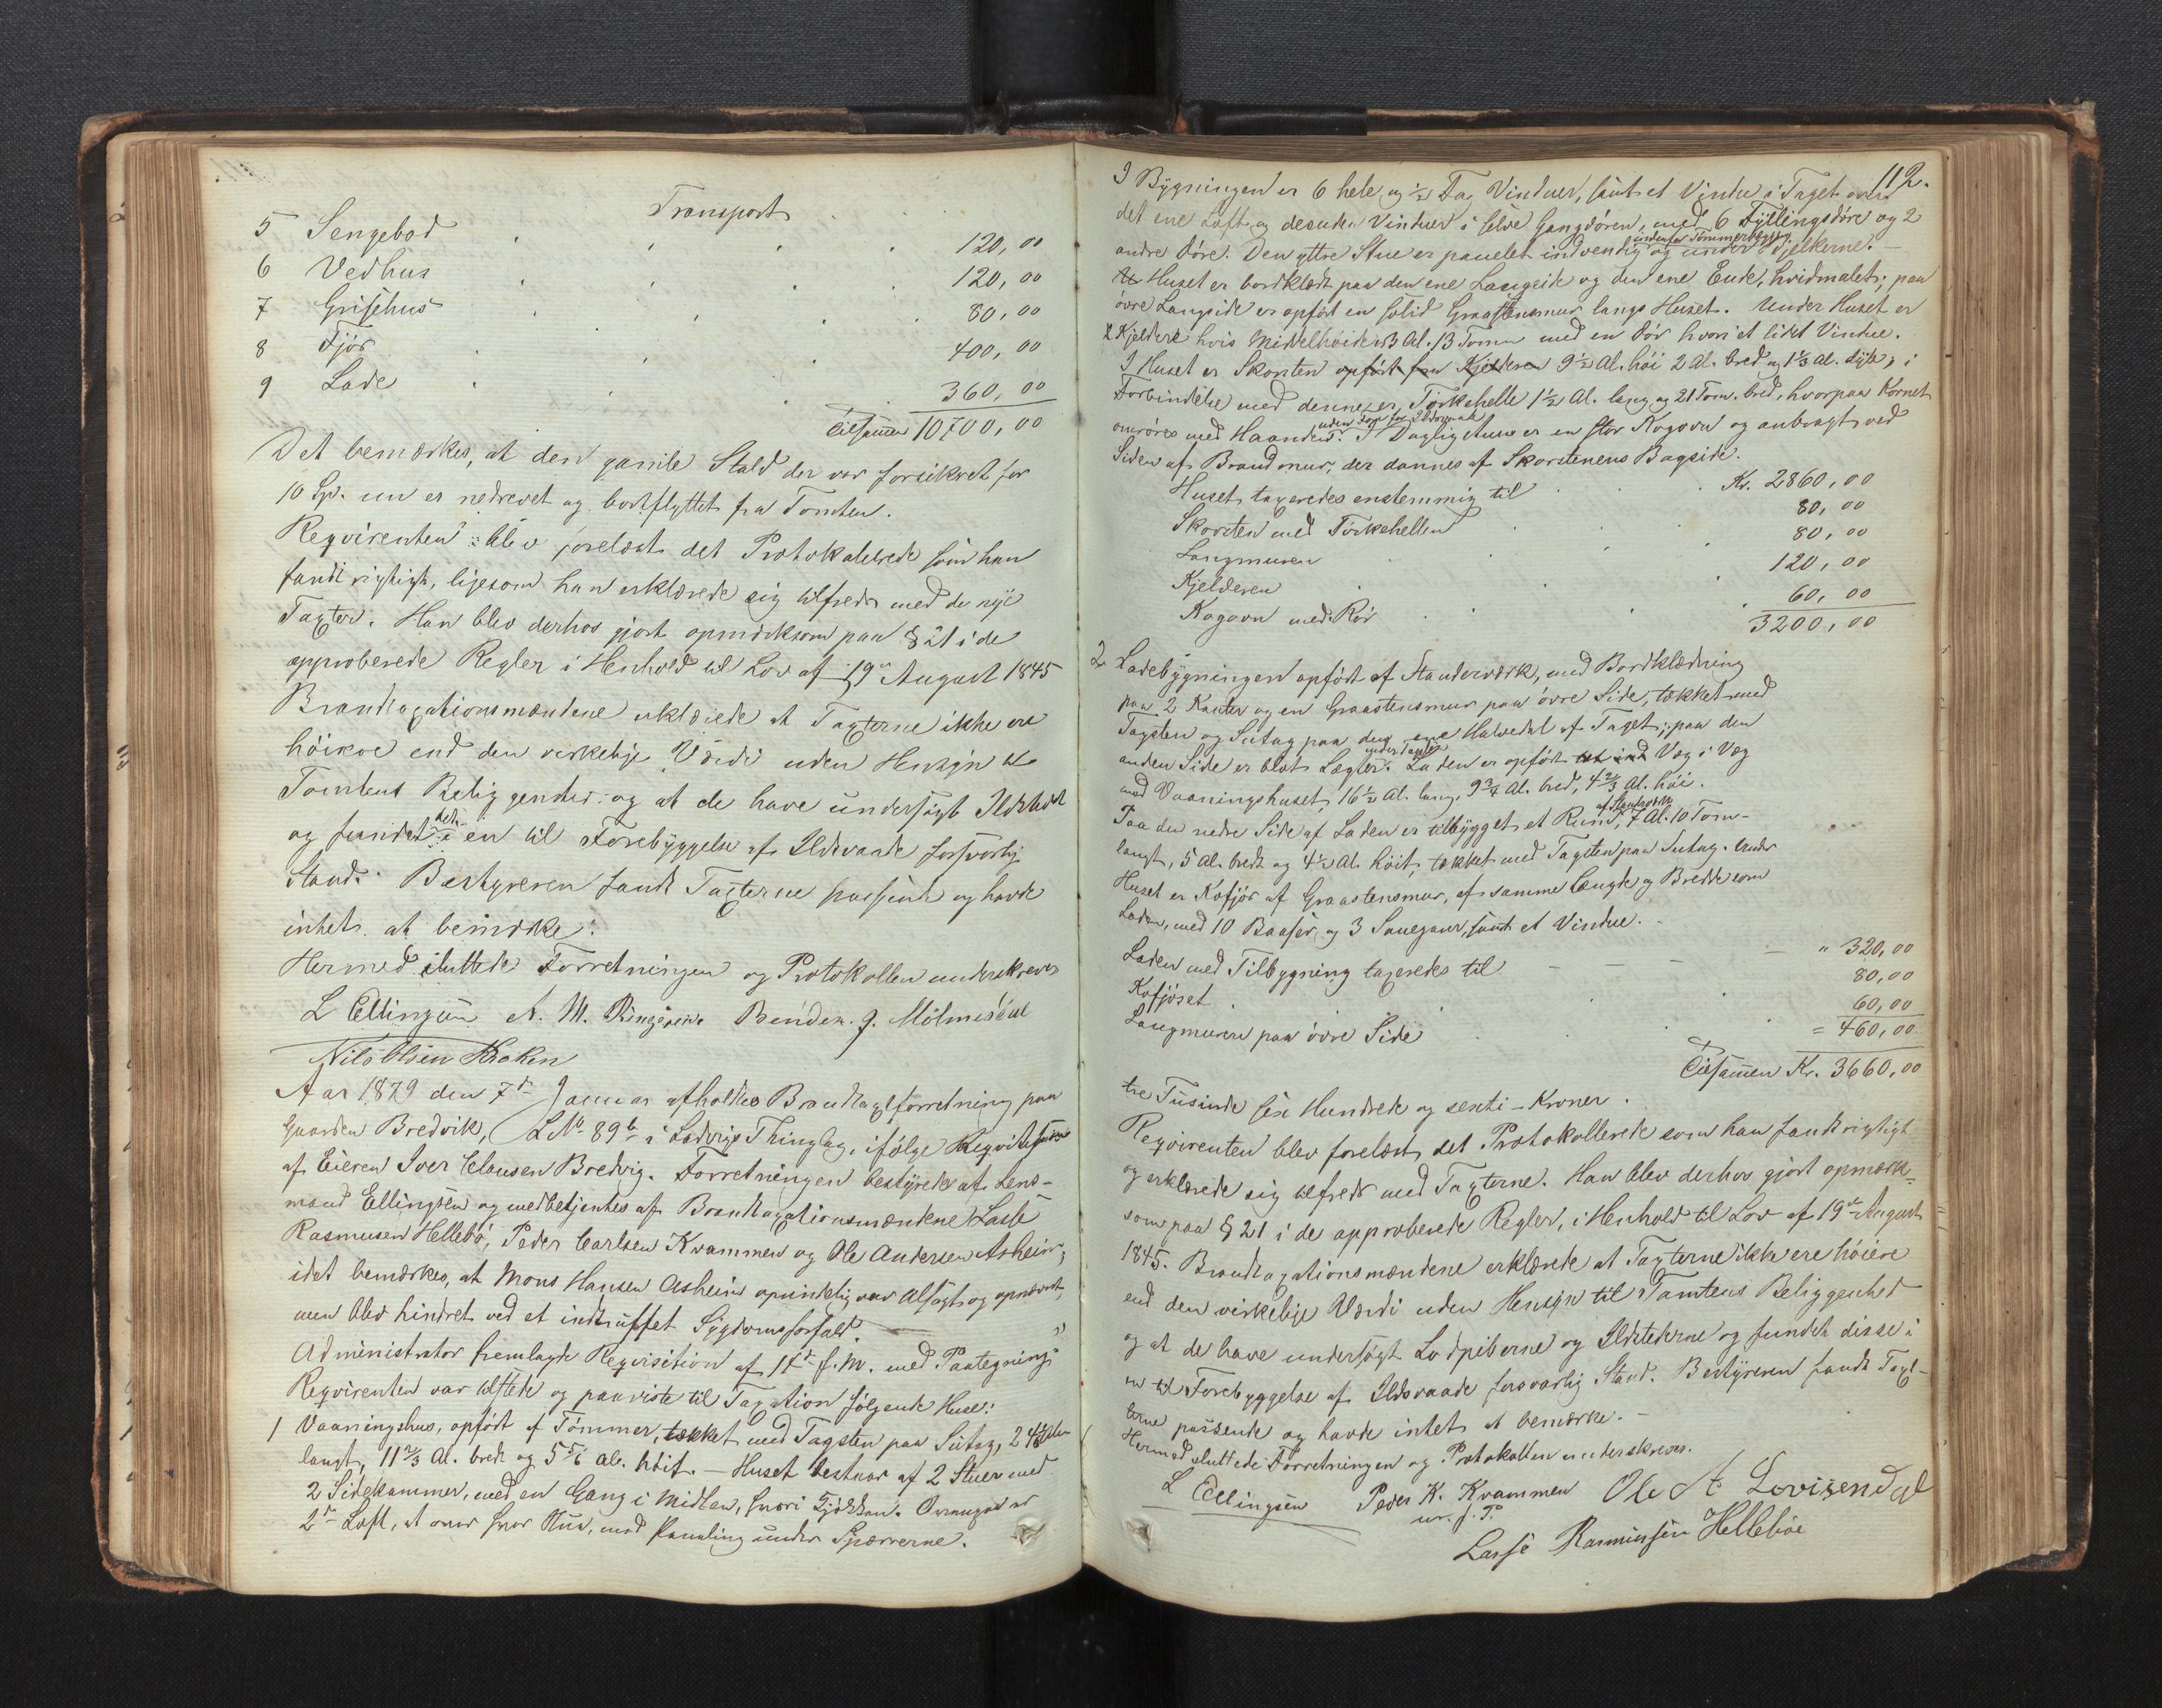 Transport
5 Sengebod 120,00
6 Vedhus 120,00
7 Grisehus 80,00
8 Fjös 400,00
9 Lade 360,00
Tilsammen 10700,00
Det bemærkes, at den gamle Stald der var forsikret for
10 Sp. nu er nedrevet og bortflyttet fra Tomten.
Reqvirenten blev forelæst det Protokollerede som han
fandt rigtigt, ligesom han erklærede sig tilfreds med de nye
Taxter. Han blev derhos gjort opmærksom paa § 21 i de
approberede Regler i Henhold til Lov af 19de August 1845
Brandtaxationsmændene erklærede at Taxterne ikke ere
höiere end den virkelige Værdi uden Hensyn til
Tomtens Beliggenhed og at de have undersøgt Ildsted
og fundet dette i en til Forebyggelse af Ildsvaade forsvarlig
Stand. Bestyreren fandt Taxterne passende og havde
intet at bemærke.
Hermed sluttede Forretningen og Protokollen underskreves
L Ellingsen A. M. Ringereide Bendix J.
Nils Olsen
Aar 1879 den 7de Januar afholdtes Brandtaxtforretning paa
Gaarden Bredvik, LNo 89b i Ladvigs Thinglag, ifölge Reqvisition
af Eieren Iver Clausen Bredvig. Forretningen bestyredes af Lens-
mand Ellingsen og medbetjentes af Brandtaxationsmændene Lasse
Rasmusen Hellebö, Peder Carlsen Kvammen og Ole Andersen Asheim,
idet bemærkes, at Mons Hansen Asheim oprindelig var tilsagt og opnævnt,
men blev hindret ved et indtruffet Sygdomsforfald.
Administrator fremlagde Reqvisition af f. M. med Paategning
Reqvirenten var tilstede og paaviste til Taxation fölgende Huse:
1 Vaaningshus, opfört af Tömmer, tækket med Tagsten paa Sutag, Alen
langt, 11 2/3 Al. bredt og 5 5/6 Al. höit. — Huset bestaar af 2 Stuer med
2 Sidekammer, med en Gang i Midten, hvori Ovenpaa er
2de Loft, et over hver Stue, med Panaling under Sperrerne.
112.
I Bygningen er 6 hele og 1/2 Fag Vinduer, samt et Vindu i Taget over
det ene Loft og desuden Vinduer i selve Gangdören, med 6 Fyllingsdöre og 2
andre döre. Den yttre Stue er panelet indvendig og under Bjelkerne.
Huset er bordklædt paa den ene Langside og den ene Ende, hvidmalet; paa
övre Langside er opfört en solid Graastensmur langs Huset. Under Huset er
Kjeldere hvis Middelhöide er 3 Al. 13 Tomm med en Dör hvori et lidet Vindue.
I Huset er Skorsten opfört fra Kjelderen 9 1/2 Al. höi 2 Al. bred og 1 1/3 Al. dyb, i
Forbindelse med denne er Törkehelle 1 1/2 Al. lang og 21 Tom. bred, hvorpaa Kornet
omröres med Haanden. I Dagligstuen er en stor Kogovn og anbragt ved
Siden af Brandmur, der dannes af Skorstenens Bagside.
Huset taxeredes enstemmig til Kr. 2860,00
Skorsten med Törkehellen 80,00
Langmuren 80,00
Kjelderen 120,00
Kogovn med Rör 60,00
3200,00
2 Ladebygningen opfört af Standerværk, med Bordklædning
paa 2 Kanter og en Graastensmur paa övre Side, tækket med
Tagsten og Sutag paa den ene Halvedel af Taget; paa den
anden Side er blot Lægter. Laden er opfört Væg i Væg
med Vaaningshuset, 16 1/2 Al. lang, 9 3/4 Al. bred, 4 2/3 Al. höi.
Paa den nedre Side af Laden er tilbygget et Rum, 7 Al. 10 Tom-
langt, 5 Al. bredt og 4 1/2 Al. höit, tækket med Tagsten paa Sutag. Under
Huset er Kofjös af Graastensmur, af samme Længde og Bredde som
Laden, med 10 Baaser og 3 Sauegarer, samt et Vindue.
Laden med Tilbygning taxeredes til " 320,00
Kofjöset 80,00
Langmuren paa övre Side 60,00
= 460,00
Tilsammen Kr. 3660,00
tre Tusinde sex Hundrede og sexti - Kroner.
Reqvirenten blev forelæst det Protokollerede som han fandt rigtigt
og erklærede sig tilfreds med Taxterne. Han blev derhos gjort opmærk-
som paa § 21 i de approberede Regler, i Henhold til Lov af 19de August
1845. Brandtaxationsmændene erklærede at Taxterne ikke ere höiere
end den virkelige Værdi uden Hensyn til Tomtens Beliggenhed
og at de have undersögt Lodpiberne og Ildstederne og fundet disse i
en til Forebyggelse af Ildsvaade forsvarlig Stand. Bestyreren fandt Tax-
terne passende og havde intet at bemærke.
Hermed sluttede Forretningen og Protokollen underskreves.
L Ellingsen Peder K. Kvammen Ole A. Lovisendal
m. f. P.
Lasse Rasmussen Helleböe